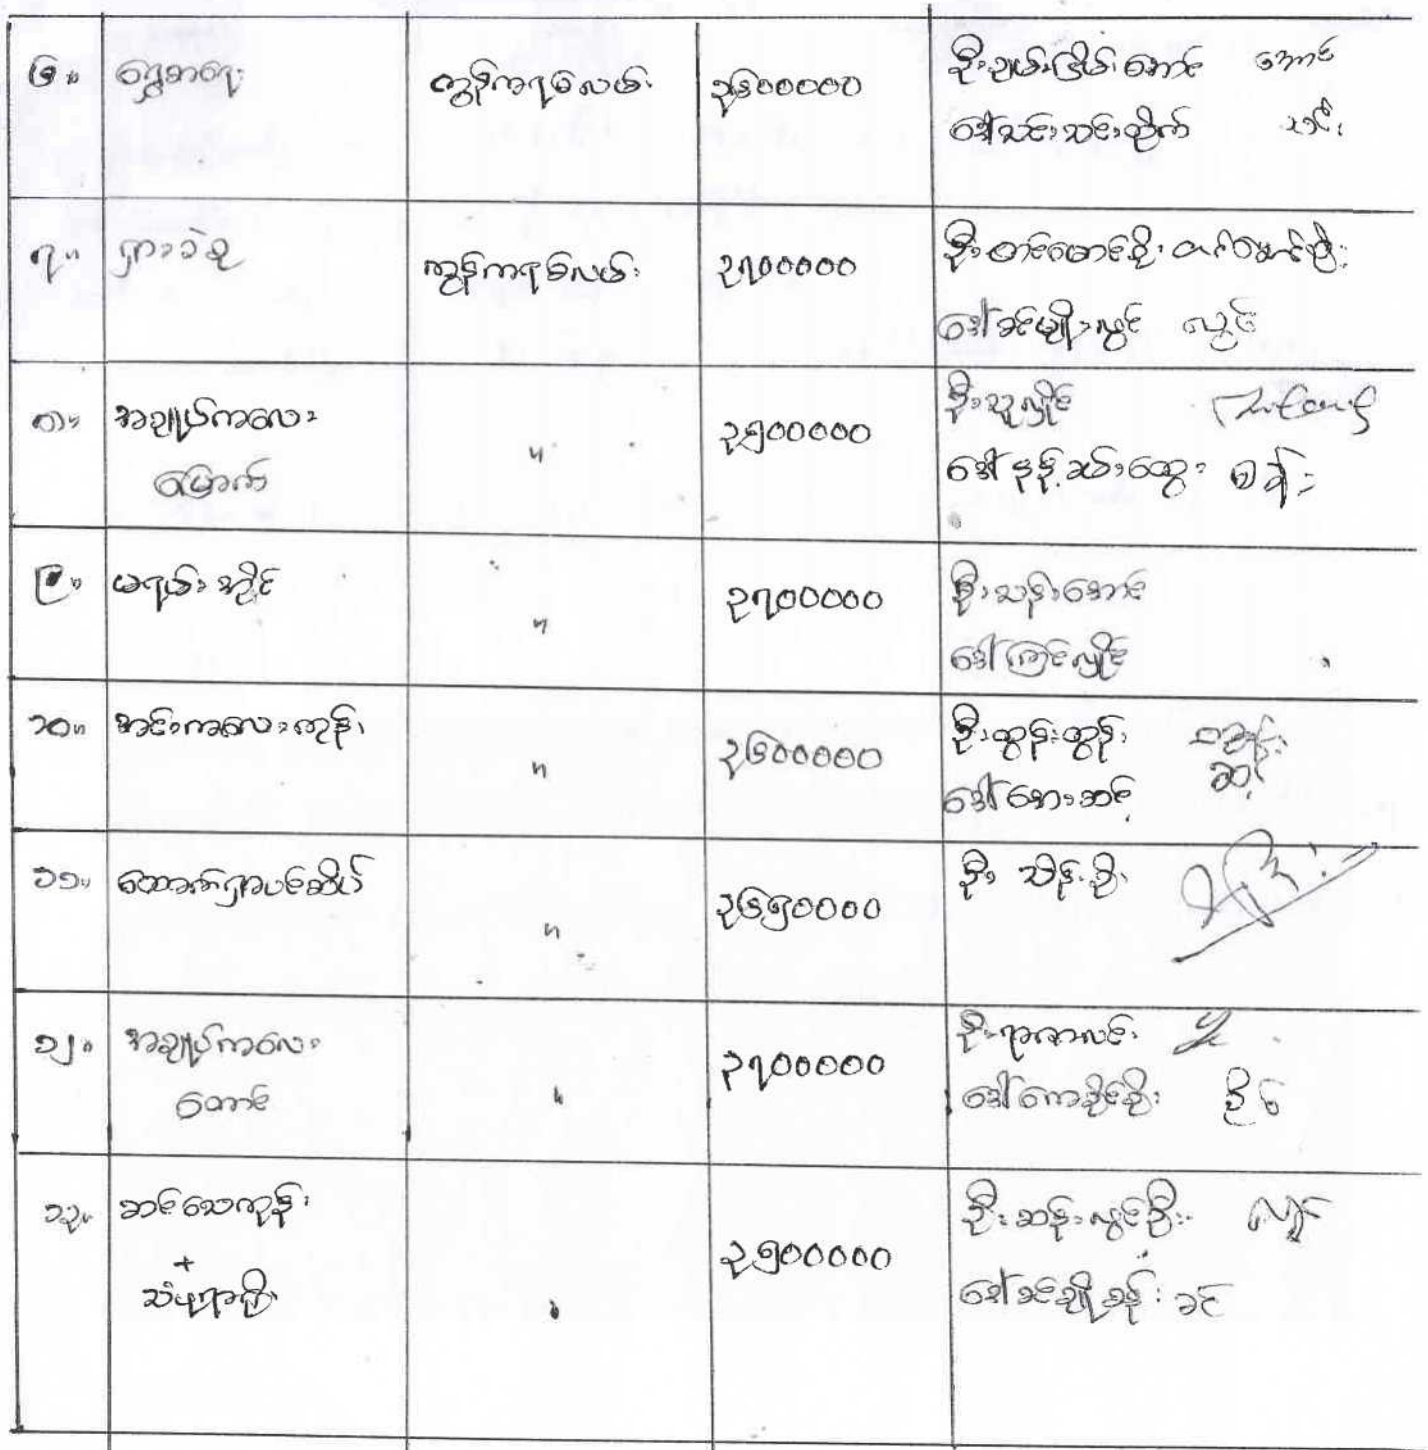 ၆။ ရွှေစာရေး ကွန်ကရစ်လမ်း ၃၆၀၀၀၀၀ ဦးဉာဏ်ငြိမ်းအောင် အောင်
ဒေါ်သင်းသင်းထိုက် သင်း
၇။ ရှားခဲစု ကွန်ကရစ်လမ်း ၃၇၀၀၀၀၀ ဦးတင်မောင်စိုး
ဒေါ်ခင်မျိုးလွင် လွင်
၈။ အချုပ်ကလေး ၃၅၀၀၀၀၀ ဦးသူလှိုင်
မြောက် " ဒေါ်နန့်ခမ်းထွေး
၉။ မရမ်းအိုင် " ၃၇၀၀၀၀၀ ဦးသန်းအောင်
ဒေါ်ကြင်လှိုင်
၁၀။ အင်းကလေးကုန်း " ၃၆၀၀၀၀၀ ဦးထွန်းထွန်း
ဒေါ်အေးဆင့်
၁၁။ ထောက်ရှာပင်ဆိပ် " ၃၆၅၀၀၀၀ ဦးသိန်းဦး
၁၂။ အချုပ်ကလေး ၃၇၀၀၀၀၀ ဦးရာဇာလင်း
တောင် " ဒေါ်ကေခိုင်ဦး
၁၃။ ဆင်သေကုန်း ၃၅၀၀၀၀၀ ဦးဆန်းလွင်ဦး လွင်
+
သံပုရာကြီး " ခင်